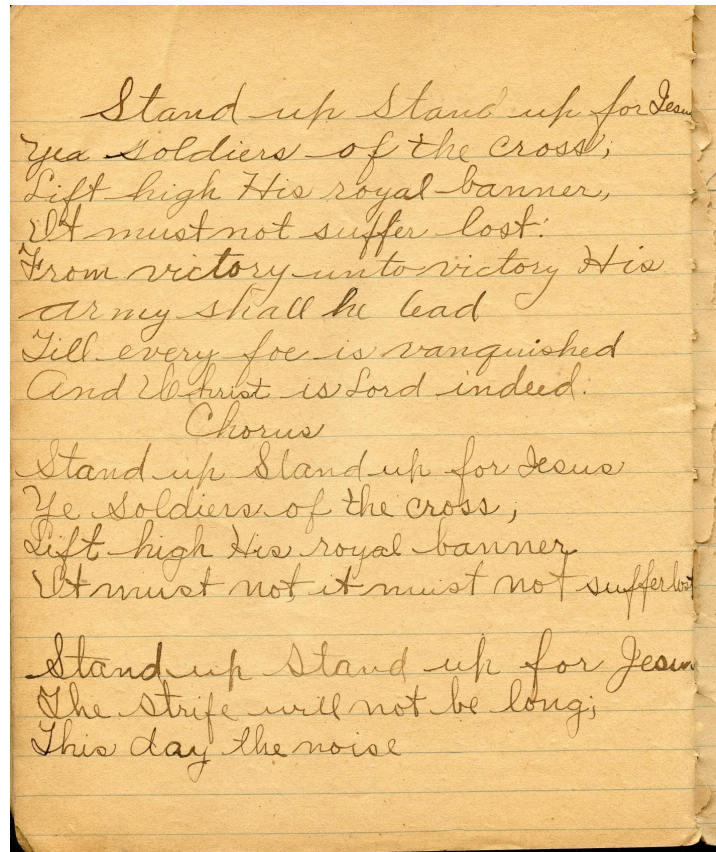 Stand up Stand up for Jesus
Yea soldiers of the cross;
Lift high His royal banner,
It must not suffer lost.
From victory unto victory His
army shall he lead
Till every foe is vanquished
And Christ is Lord indeed.
Chorus
Stand up Stand up for Jesus
Ye soldiers of the cross,
Lift high His royal banner
It must not, it must not suffer lost
Stand up Stand up for Jesus
The strife will not be long;
This day the noise